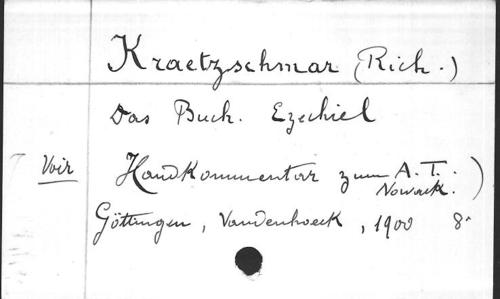 Kraetzschmar (Rich.)
Das Buch. Ezechiel
Voir Handkommentar zum A. T.
Nowack. )
Göttingen, Vandenhoeck, 1900 8°